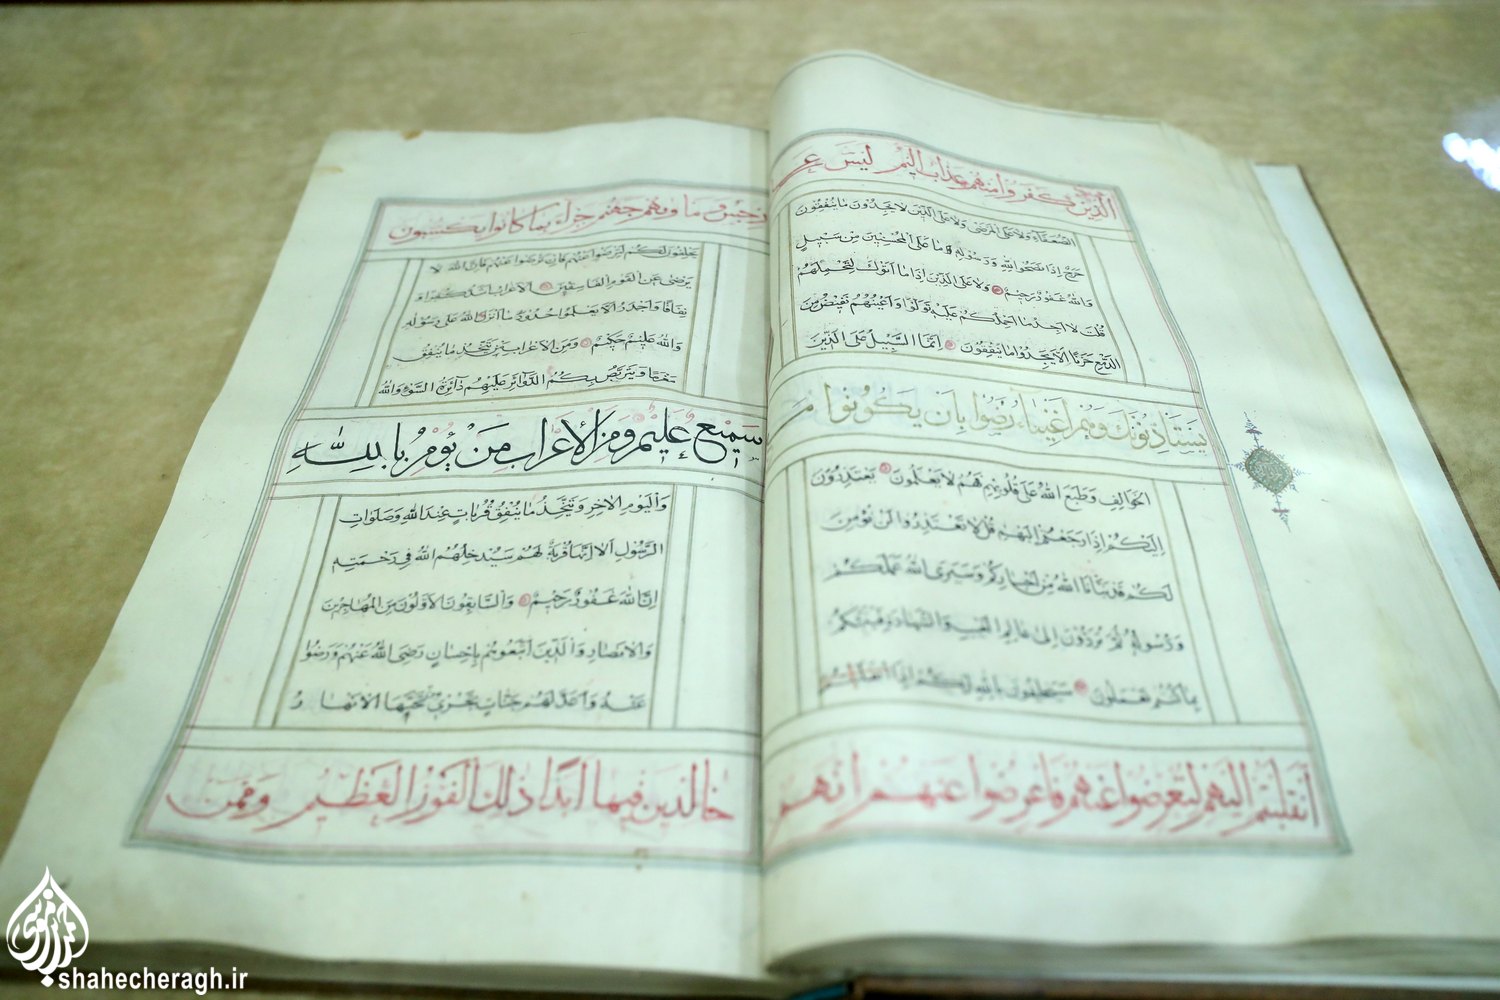 الذين كفروا منهم عذاب اليم ليس على
الضعفاء ولا على المرضى ولا على الذين لا يجدون ما ينفقون
حرج اذا نصحوا لله ورسوله ما على المحسنين من سبيل
والله غفور رحيم ولا على الذين اذا ما اتوك لتحملهم
قلت لا اجد ما احملكم عليه تولوا واعينهم تفيض من
الدمع حزنا الا يجدوا ما ينفقون انما السبيل على الذين
يستاذنونك وهم اغنياء رضوا بان يكونوا مع
الخوالف وطبع الله على قلوبهم فهم لا يعلمون يعتذرون
اليكم اذا رجعتم اليهم قل لا تعتذروا لن نؤمن
لكم قد نبانا الله من اخباركم وسيرى الله عملكم
ورسوله ثم تردون الى عالم الغيب والشهادة فينبئكم
بما كنتم تعملون سيحلفون بالله لكم اذا
انقلبتم اليهم لتعرضوا عنهم فاعرضوا عنهم انهم
رجس وماويهم جهنم جزاء بما كانوا يكسبون
يحلفون لكم لترضوا عنهم فان ترضوا عنهم فان الله لا
يرضى عن القوم الفاسقين الاعراب اشد كفرا و
نفاقا واجدر الا يعلموا حدود ما انزل الله على رسوله
والله عليم حكيم ومن الاعراب من يتخذ ما ينفق
مغرما ويتربص بكم الدوائر عليهم دائرة السوء والله
سميع عليم ومن الاعراب من يؤمن بالله
واليوم الاخر ويتخذ ما ينفق قربات عند الله وصلوات
الرسول الا انها قربة لهم سيدخلهم الله في رحمته
ان الله غفور رحيم والسابقون الاولون من المهاجرين
والانصار والذين اتبعوهم باحسان رضى الله عنهم ورضوا
عنه واعد لهم جنات تجرى تحتها الانهار
خالدين فيها ابدا ذلك الفوز العظيم وممن
shahecheragh.ir